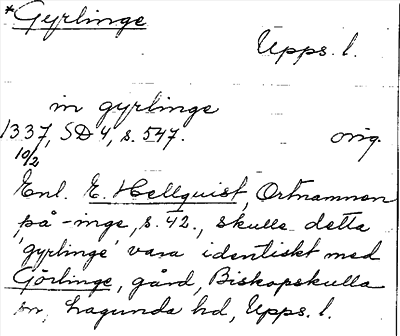 *Gyrlinge
Upps. l.
in gyrlinge
1337, SD 4, s. 547. orig.
10/2
Enl. E. Hellquist, Ortnamnen
på -inge, s. 42., skulle detta
'gyrlinge' vara identiskt med
Görlinge, gård, Biskopskulla
sn, Lagunda hd, Upps. l.